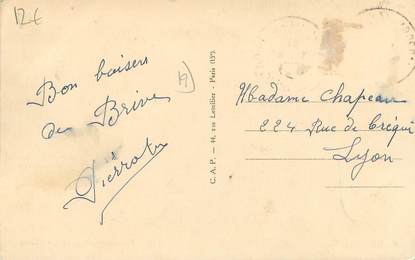 12€
19
Bon baisers
de Brive
Pierrot
C. A. P. — 44, rue Letellier - Paris (15e)
Madame Chapeau
224 Rue de Créqui
Lyon